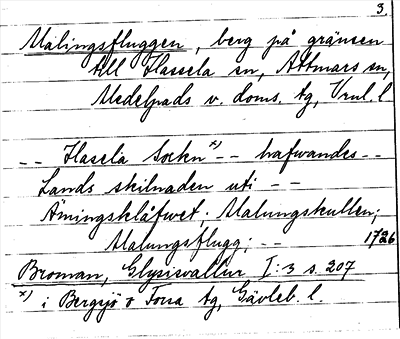 3.
Malingsfluggen, berg på gränsen
till Hassela sn, Attmars sn,
Medelpads v. doms. tg, Vnl. l.
-- Hasela Sockn x) -- hafwandes --
Lands skilnaden uti --
Åmingsklåfwet; Malungskullen;
Malungsflugg; -- 1726
Broman, Glysisvallur I:3 s. 207
x) i Bergsjö o Forsa tg, Gävleb. l.